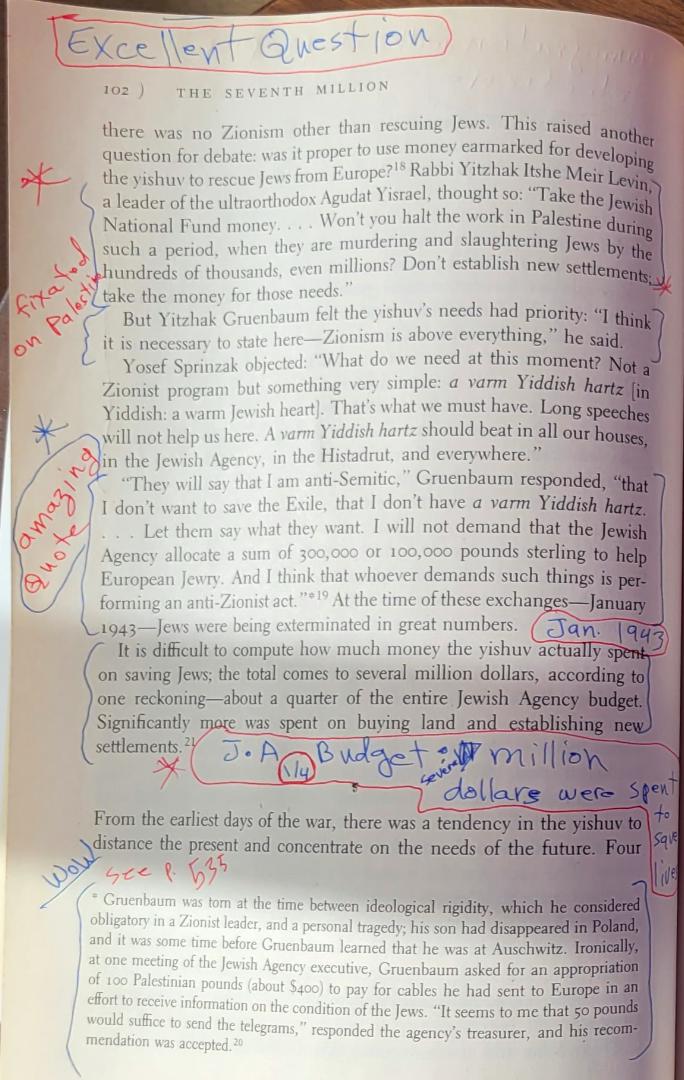 Excellent Question
102 ) THE SEVENTH MILLION
there was no Zionism other than rescuing Jews. This raised another
question for debate: was it proper to use money earmarked for developing
the yishuv to rescue Jews from Europe?18 Rabbi Yitzhak Itshe Meir Levin,
a leader of the ultraorthodox Agudat Yisrael, thought so: “Take the Jewish
National Fund money. . . . Won’t you halt the work in Palestine during
such a period, when they are murdering and slaughtering Jews by the
hundreds of thousands, even millions? Don’t establish new settlements;
take the money for those needs.”
fixated
on Palestine
But Yitzhak Gruenbaum felt the yishuv’s needs had priority: “I think
it is necessary to state here—Zionism is above everything,” he said.
Yosef Sprinzak objected: “What do we need at this moment? Not a
Zionist program but something very simple: a varm Yiddish hartz [in
Yiddish: a warm Jewish heart]. That’s what we must have. Long speeches
will not help us here. A varm Yiddish hartz should beat in all our houses,
in the Jewish Agency, in the Histadrut, and everywhere.”
amazing
Quote
“They will say that I am anti-Semitic,” Gruenbaum responded, “that
I don’t want to save the Exile, that I don’t have a varm Yiddish hartz.
. . . Let them say what they want. I will not demand that the Jewish
Agency allocate a sum of 300,000 or 100,000 pounds sterling to help
European Jewry. And I think that whoever demands such things is per-
forming an anti-Zionist act.”*19 At the time of these exchanges—January
1943—Jews were being exterminated in great numbers.
Jan. 1943
It is difficult to compute how much money the yishuv actually spent
on saving Jews; the total comes to several million dollars, according to
one reckoning—about a quarter of the entire Jewish Agency budget.
Significantly more was spent on buying land and establishing new
settlements.21
J.A 1/4 Budget: several million
dollars were spent
to
save
lives
From the earliest days of the war, there was a tendency in the yishuv to
distance the present and concentrate on the needs of the future. Four
Wow
see P. 535
* Gruenbaum was torn at the time between ideological rigidity, which he considered
obligatory in a Zionist leader, and a personal tragedy; his son had disappeared in Poland,
and it was some time before Gruenbaum learned that he was at Auschwitz. Ironically,
at one meeting of the Jewish Agency executive, Gruenbaum asked for an appropriation
of 100 Palestinian pounds (about $400) to pay for cables he had sent to Europe in an
effort to receive information on the condition of the Jews. “It seems to me that 50 pounds
would suffice to send the telegrams,” responded the agency’s treasurer, and his recom-
mendation was accepted.20